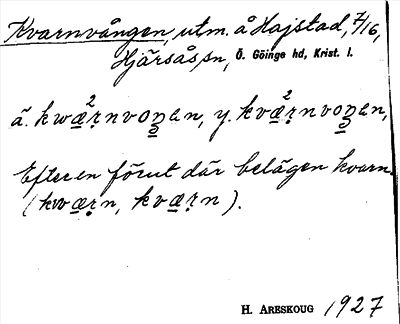 Kvarnvången, utm. å Hajstad, 7/16,
Hjärsås sn, Ö. Göinge hd, Krist. l.
ä. kwæ²r̥nvoʒen, y. kvæ²r̥nvoʒen,
Efter en förut där belägen kvarn
(kwær̥n, kvær̥n).
H. ARESKOUG 1927